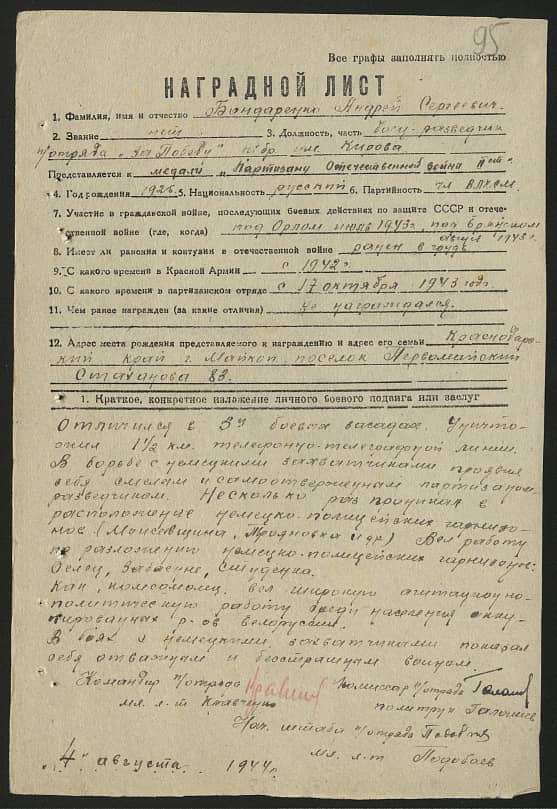 95
Все графы заполнять полностью
НАГРАДНОЙ ЛИСТ
1. Фамилия, имя и отчество Бондаренко Андрей Сергеевич
2. Звание нет 3. Должность, часть боец-разведчик
п/отряда „За Победу" п/бр им. Кирова
Представляется к медали „Партизану Отечественной войны II ст"
4. Год рождения 1926 5. Национальность русский 6. Партийность чл ВЛКСМ
7. Участие в гражданской войне, последующих боевых действиях по защите СССР и отече-
ственной войне (где, когда) под Орлом июль 1943г. под Брянском
август 1943г.
8. Имеет ли ранения и контузии в отечественной войне ранен в грудь
9. С какого времени в Красной Армии с 1942г
10. С какого времени в партизанском отряде с 17 октября 1943 года
11. Чем ранее награжден (за какие отличия) не награждался.
12. Адрес места рождения представляемого к награждению и адрес его семьи Краснодарс-
кий край г. Майкоп, поселок Первомайский
Стаханова 83.
1. Краткое, конкретное изложение личного боевого подвига или заслуг
Отличился в 3х боевых засадах. Уничто-
жил 1½ км. телефонно-телеграфной линии.
В борьбе с немецкими захватчиками проявил
себя смелым и самоотверженным партизаном
разведчиком. Несколько раз проникал в
расположение немецко-полицейских гарнизо-
нов (Моисеевщина, Трояновка и др) Вел работу
по разложению немецко-полицейских гарнизонов:
Селец, Забаенье, Студенка.
Как комсомолец вел широкую агитационно-
политическую работу среди населения окку-
пированных р-ов Белоруссии.
В боях с немецкими захватчиками показал
себя отважным и бесстрашным воином.
Командир п/отряда Комиссар п/отряда
мл. л-т Кравченко политрук
Нач. штаба п/отряда
мл. л-т Подобаев
„4" августа 1944г.